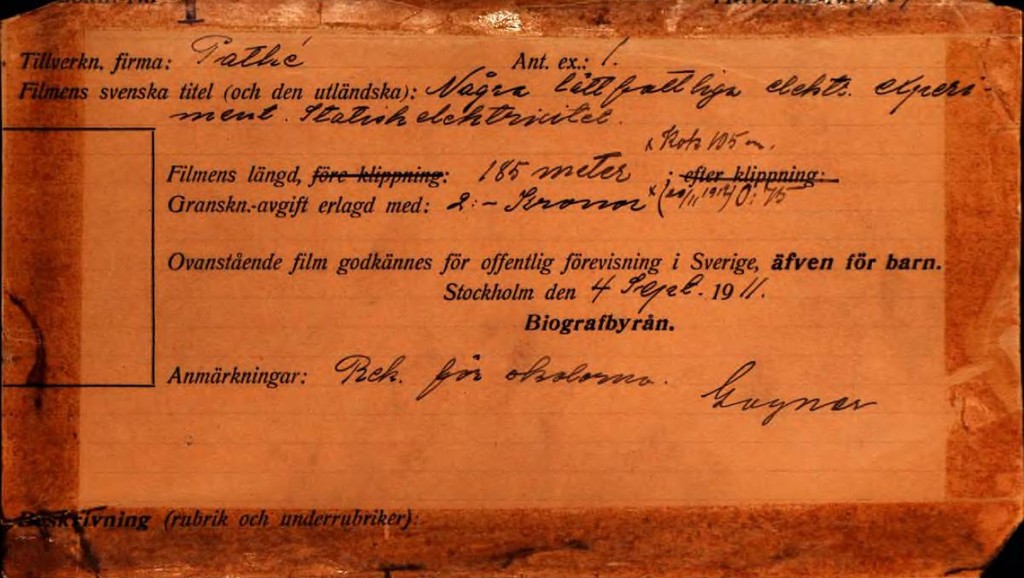 Tillverkn. firma: Pathé Ant. ex.: 1.
Filmens svenska titel (och den utländska): Några lättfattliga elektr. experi-
ment. Statisk elektricitet.
x Kob 105 m.
Filmens längd, före klippning: 185 meter ; efter klippning:
Granskn.-avgift erlagd med: 2:- Kronor x (20/11 1912) 0:75
Ovanstående film godkännes för offentlig förevisning i Sverige, äfven för barn.
Stockholm den 4 Sept. 1911.
Biografbyrån.
Anmärkningar: Rek. för skolorna.
Beskrivning (rubrik och underrubriker):